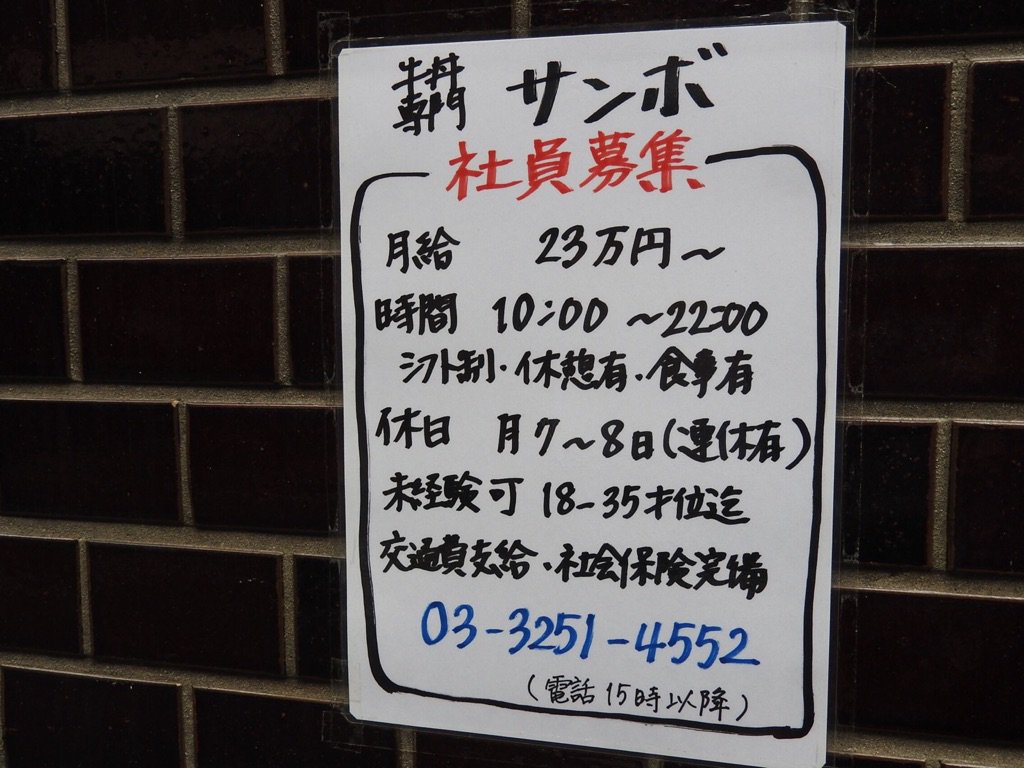 牛丼専門 サンボ
社員募集
月給 23万円～
時間 10:00 ～22:00
シフト制・休憩有・食事有
休日 月7～8日(連休有)
未経験可 18-35才位迄
交通費支給・社会保険完備
03-3251-4552
(電話 15時以降)